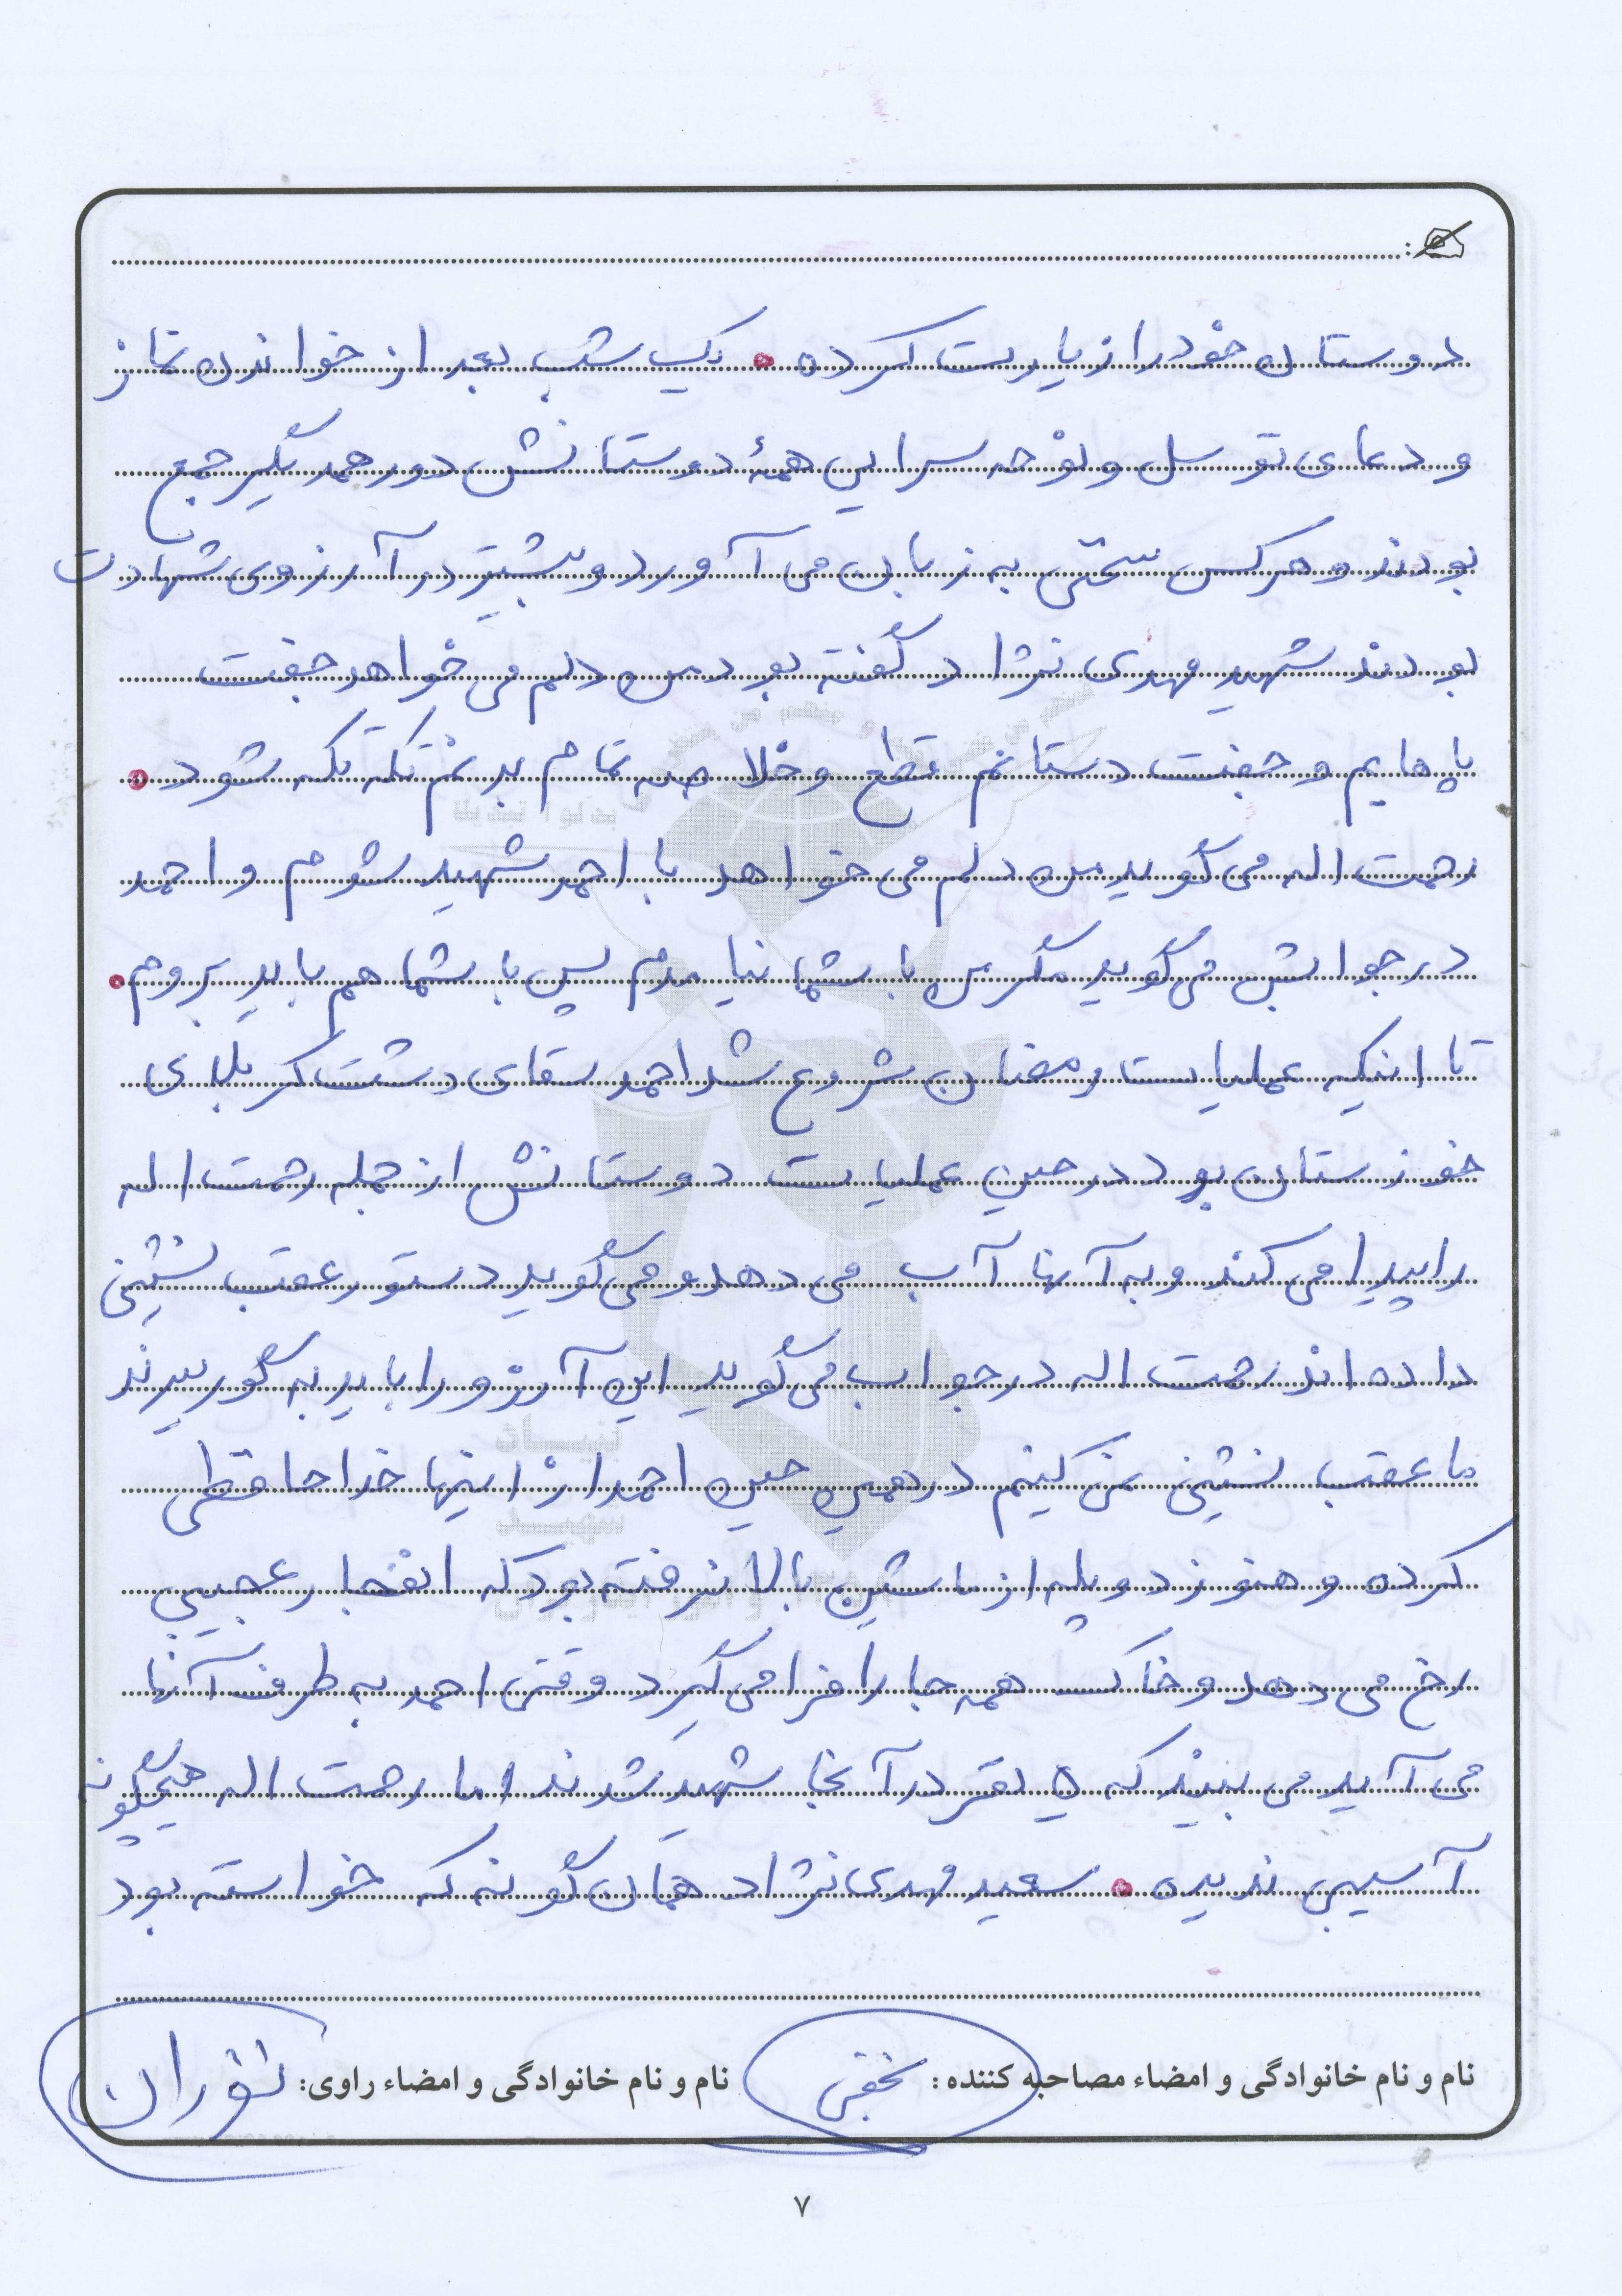 دوستان خود را زیارت کرده • یک شب بعد از خواندن نماز
و دعای توسل و نوحه سرایی همهٔ دوستانش دور همدیگر جمع
بودند و هر کس سختی به زبان می آورد و بیشتر در آرزوی شهادت
بودند شهید مهدی نژاد گفته بود من دلم می خواهد جفت
پاهایم و جفت دستانم قطع و خلاصه تمام بدنم تکه تکه شود •
رحمت اله می گوید من دلم می خواهد با احمد شهید شوم و احمد
در جوابش می گوید مگر من با شما نیامدم پس با شما هم باید بروم •
تا اینکه عملیات رمضان شروع شد احمد سقای دشت کربلای
خوزستان بود در حین عملیات دوستانش از جمله رحمت اله
را پیدا می کند و به آنها آب می دهد و می گوید دستور عقب نشینی
داده اند رحمت اله در جواب می گوید این آرزو را باید به گور ببرند
ما عقب نشینی نمی کنیم در همین حین احمد از اینها خداحافظی
کرده و هنوز دو پله از ماشین بالا نرفته بود که انفجار عجیبی
رخ می دهد و خاک همه جا را فرا می گیرد وقتی احمد به طرف آنها
می آید می بیند که ۵ نفر در آنجا شهید شدند اما رحمت اله هیچگونه
آسیبی ندیده • سعید مهدی نژاد همان گونه که خواسته بود
نام و نام خانوادگی و امضاء مصاحبه کننده: نجفی نام و نام خانوادگی و امضاء راوی:
۷